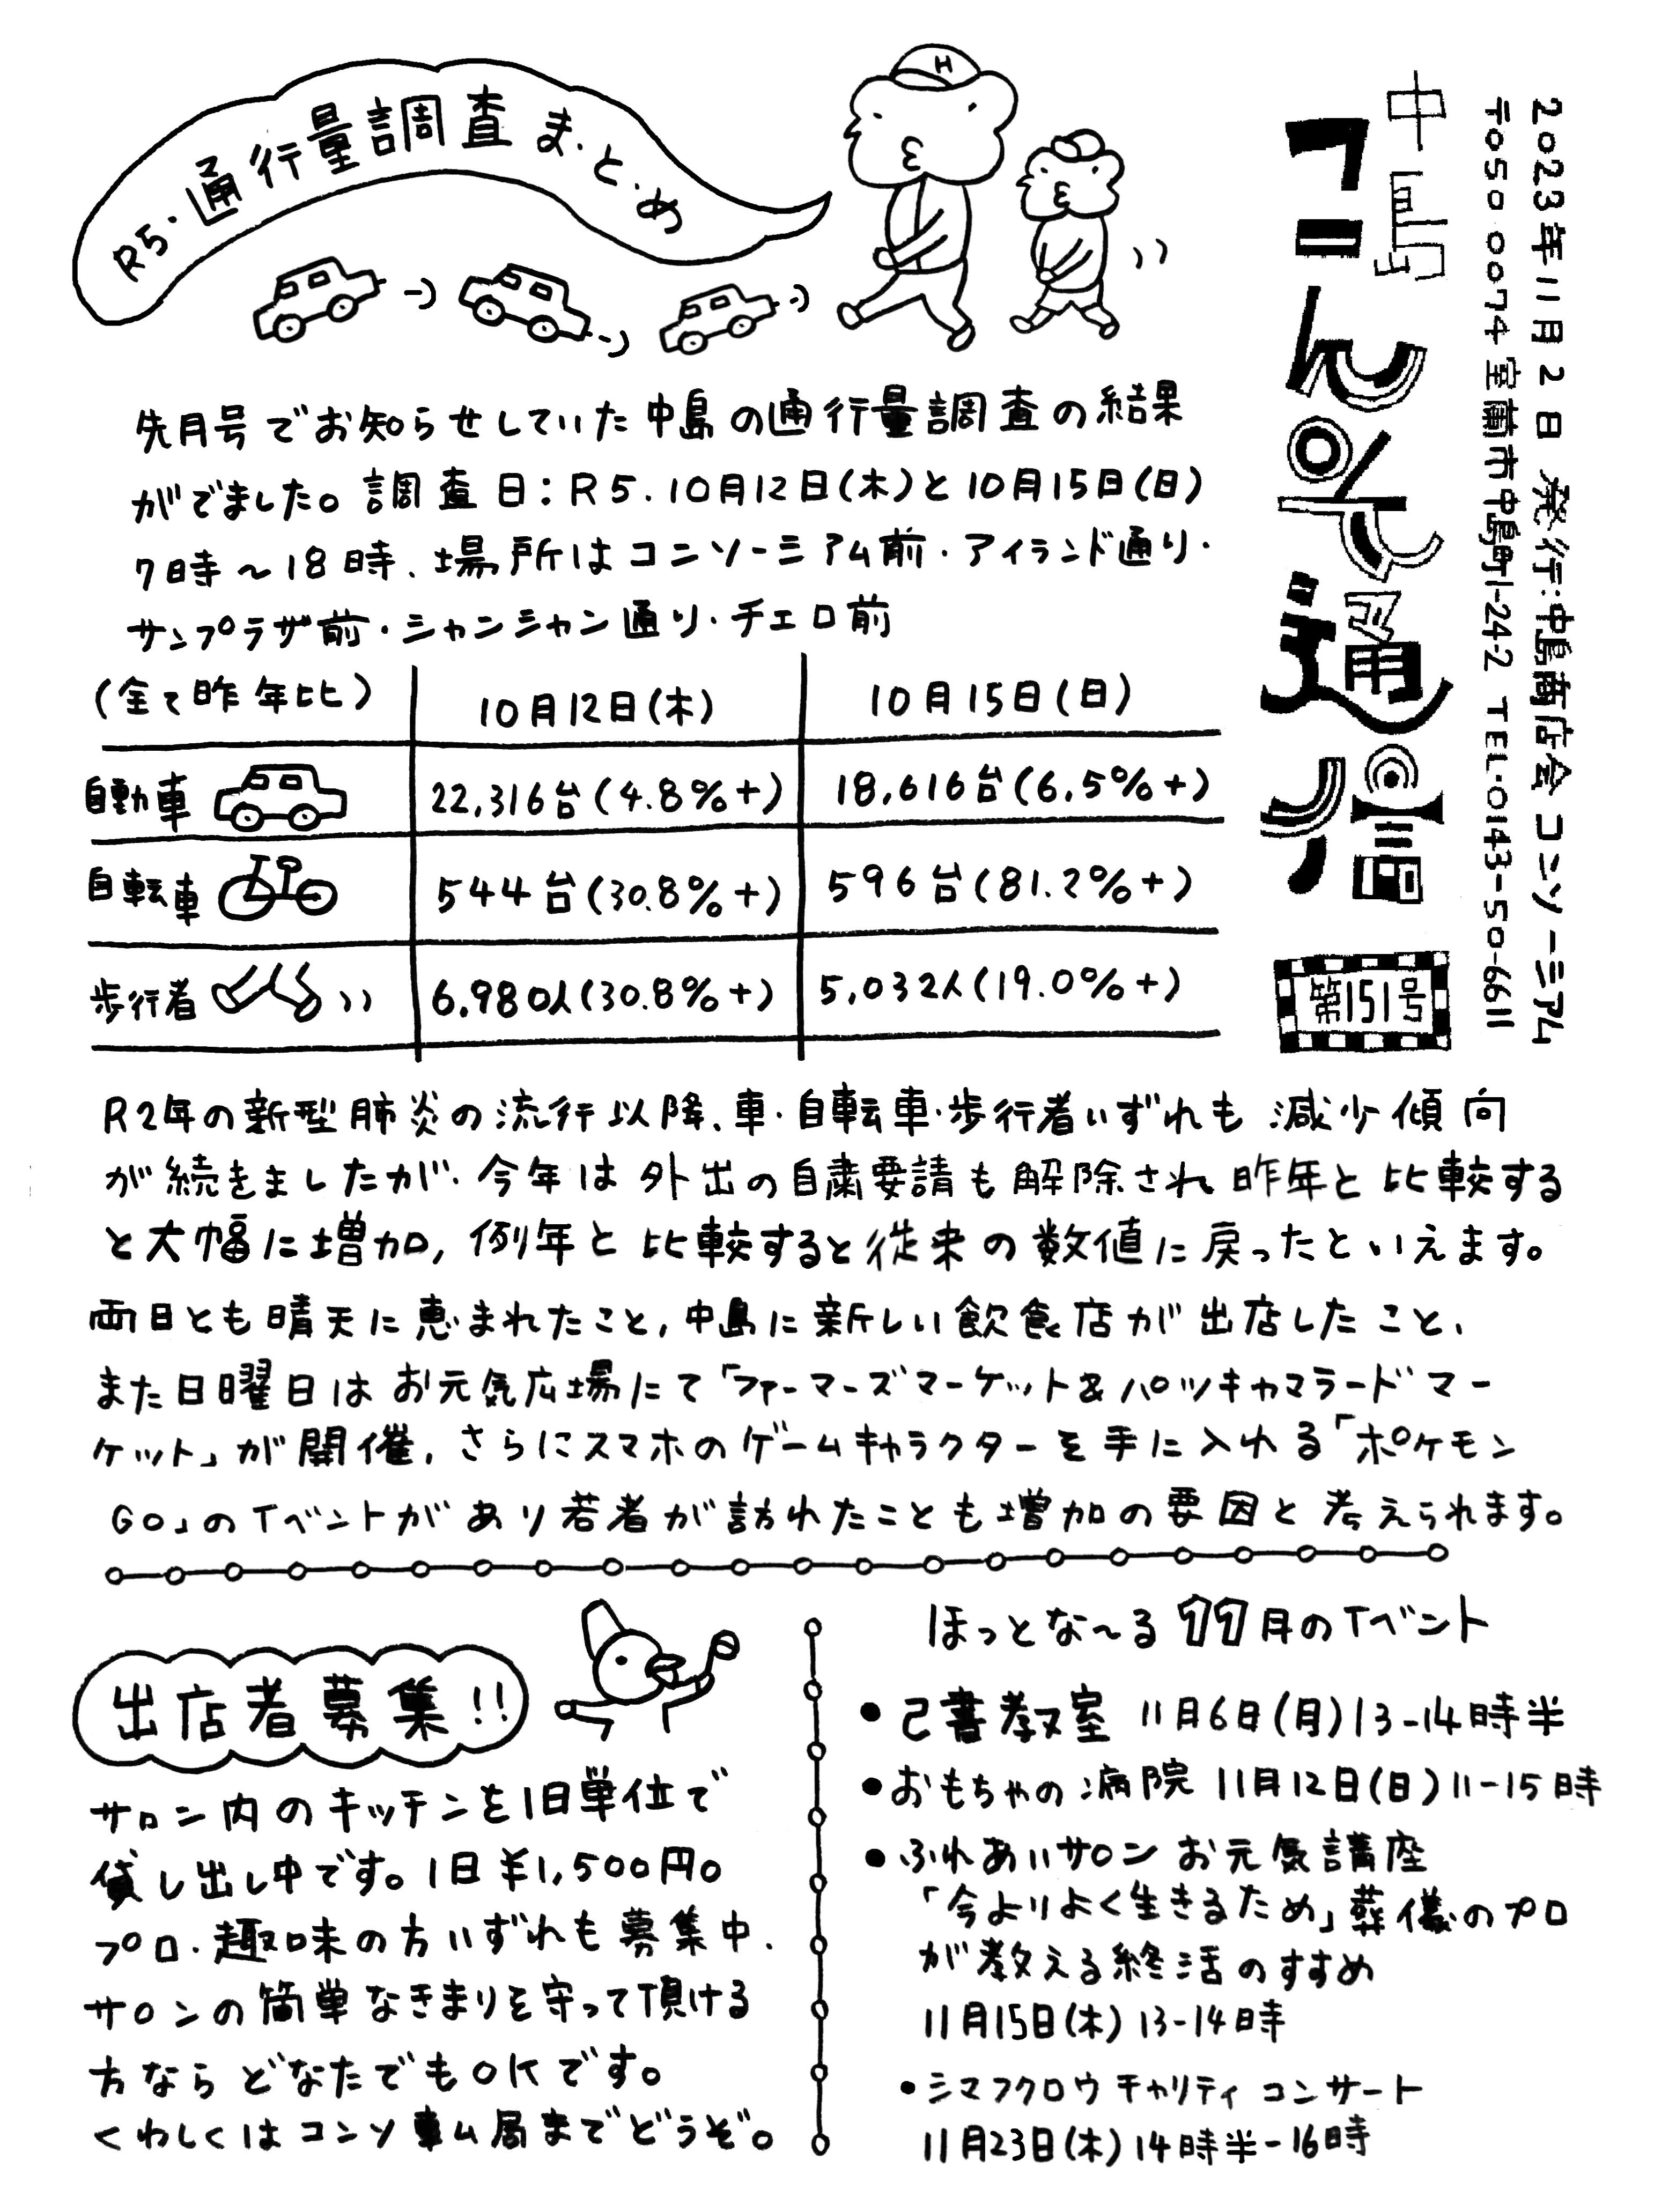 2023年11月2日 発行:中島商店会コンソーシアム
〒050 0074 室蘭市中島町1-24-2 TEL・0143-50-6611
中島
コンソ通信
第151号
R5・通行量調査まとめ
H
先月号でお知らせしていた中島の通行量調査の結果
がでました。調査日:R5.10月12日(木)と10月15日(日)
7時〜18時、場所はコンソーシアム前・アイランド通り・
サンプラザ前・シャンシャン通り・チェロ前
(全て昨年比) 10月12日(木) 10月15日(日)
自動車 22,316台(4.8%+) 18,616台(6.5%+)
自転車 544台(30.8%+) 596台(81.2%+)
歩行者 6,980人(30.8%+) 5,032人(19.0%+)
R2年の新型肺炎の流行以降、車・自転車・歩行者いずれも減少傾向
が続きましたが、今年は外出の自粛要請も解除され昨年と比較する
と大幅に増加,例年と比較すると従来の数値に戻ったといえます。
両日とも晴天に恵まれたこと,中島に新しい飲食店が出店したこと、
また日曜日はお元気広場にて「ファーマーズマーケット&パツキャマラードマー
ケット」が開催,さらにスマホのゲームキャラクターを手に入れる「ポケモン
GO」のイベントがあり若者が訪れたことも増加の要因と考えられます。
出店者募集!!
サロン内のキッチンを1日単位で
貸し出し中です。1日¥1,500円。
プロ・趣味の方いずれも募集中、
サロンの簡単なきまりを守って頂ける
方ならどなたでもOKです。
くわしくはコンソ事ム局までどうぞ。
ほっとな〜る11月のイベント
●己書教室 11月6日(月)13-14時半
●おもちゃの病院 11月12日(日)11-15時
●ふれあいサロン お元気講座
「今よりよく生きるため」葬儀のプロ
が教える終活のすすめ
11月15日(木)13-14時
●シマフクロウチャリティコンサート
11月23日(木)14時半-16時